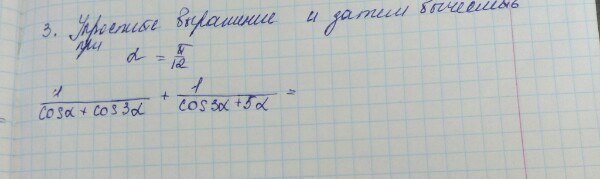 3. Упростите выражение и затем вычеслить
при α = π/12
1/(cosα + cos3α) + 1/(cos3α + 5α) =